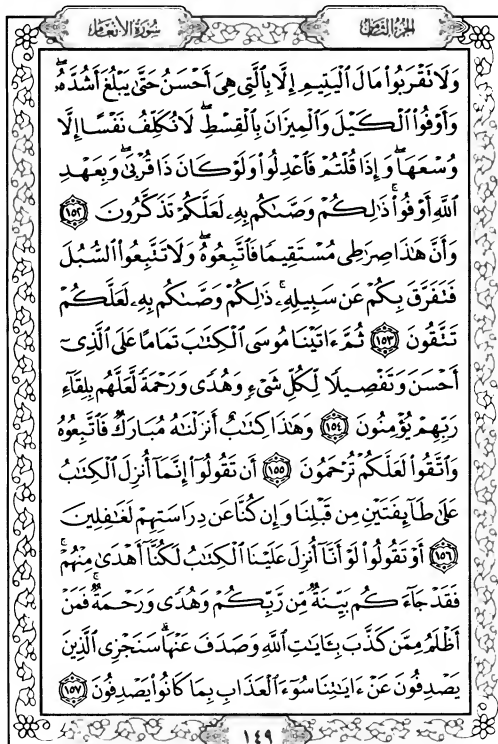 سُورَةُ الأَنعَامِ
الجُزءُ الثَّامِنُ
وَلَا تَقْرَبُوا۟ مَالَ ٱلْيَتِيمِ إِلَّا بِٱلَّتِى هِىَ أَحْسَنُ حَتَّىٰ يَبْلُغَ أَشُدَّهُۥۖ
وَأَوْفُوا۟ ٱلْكَيْلَ وَٱلْمِيزَانَ بِٱلْقِسْطِۖ لَا نُكَلِّفُ نَفْسًا إِلَّا
وُسْعَهَاۖ وَإِذَا قُلْتُمْ فَٱعْدِلُوا۟ وَلَوْ كَانَ ذَا قُرْبَىٰۖ وَبِعَهْدِ
ٱللَّهِ أَوْفُوا۟ۚ ذَٰلِكُمْ وَصَّىٰكُم بِهِۦ لَعَلَّكُمْ تَذَكَّرُونَ ١٥٢
وَأَنَّ هَٰذَا صِرَٰطِى مُسْتَقِيمًا فَٱتَّبِعُوهُۖ وَلَا تَتَّبِعُوا۟ ٱلسُّبُلَ
فَتَفَرَّقَ بِكُمْ عَن سَبِيلِهِۦۚ ذَٰلِكُمْ وَصَّىٰكُم بِهِۦ لَعَلَّكُمْ
تَتَّقُونَ ١٥٣ ثُمَّ ءَاتَيْنَا مُوسَى ٱلْكِتَٰبَ تَمَامًا عَلَى ٱلَّذِىٓ
أَحْسَنَ وَتَفْصِيلًا لِّكُلِّ شَىْءٍ وَهُدًى وَرَحْمَةً لَّعَلَّهُم بِلِقَآءِ
رَبِّهِمْ يُؤْمِنُونَ ١٥٤ وَهَٰذَا كِتَٰبٌ أَنزَلْنَٰهُ مُبَارَكٌ فَٱتَّبِعُوهُ
وَٱتَّقُوا۟ لَعَلَّكُمْ تُرْحَمُونَ ١٥٥ أَن تَقُولُوٓا۟ إِنَّمَآ أُنزِلَ ٱلْكِتَٰبُ
عَلَىٰ طَآئِفَتَيْنِ مِن قَبْلِنَا وَإِن كُنَّا عَن دِرَاسَتِهِمْ لَغَٰفِلِينَ
١٥٦ أَوْ تَقُولُوا۟ لَوْ أَنَّآ أُنزِلَ عَلَيْنَا ٱلْكِتَٰبُ لَكُنَّآ أَهْدَىٰ مِنْهُمْۚ
فَقَدْ جَآءَكُم بَيِّنَةٌ مِّن رَّبِّكُمْ وَهُدًى وَرَحْمَةٌۚ فَمَنْ
أَظْلَمُ مِمَّن كَذَّبَ بِـَٔايَٰتِ ٱللَّهِ وَصَدَفَ عَنْهَاۗ سَنَجْزِى ٱلَّذِينَ
يَصْدِفُونَ عَنْ ءَايَٰتِنَا سُوٓءَ ٱلْعَذَابِ بِمَا كَانُوا۟ يَصْدِفُونَ ١٥٧
١٤٩